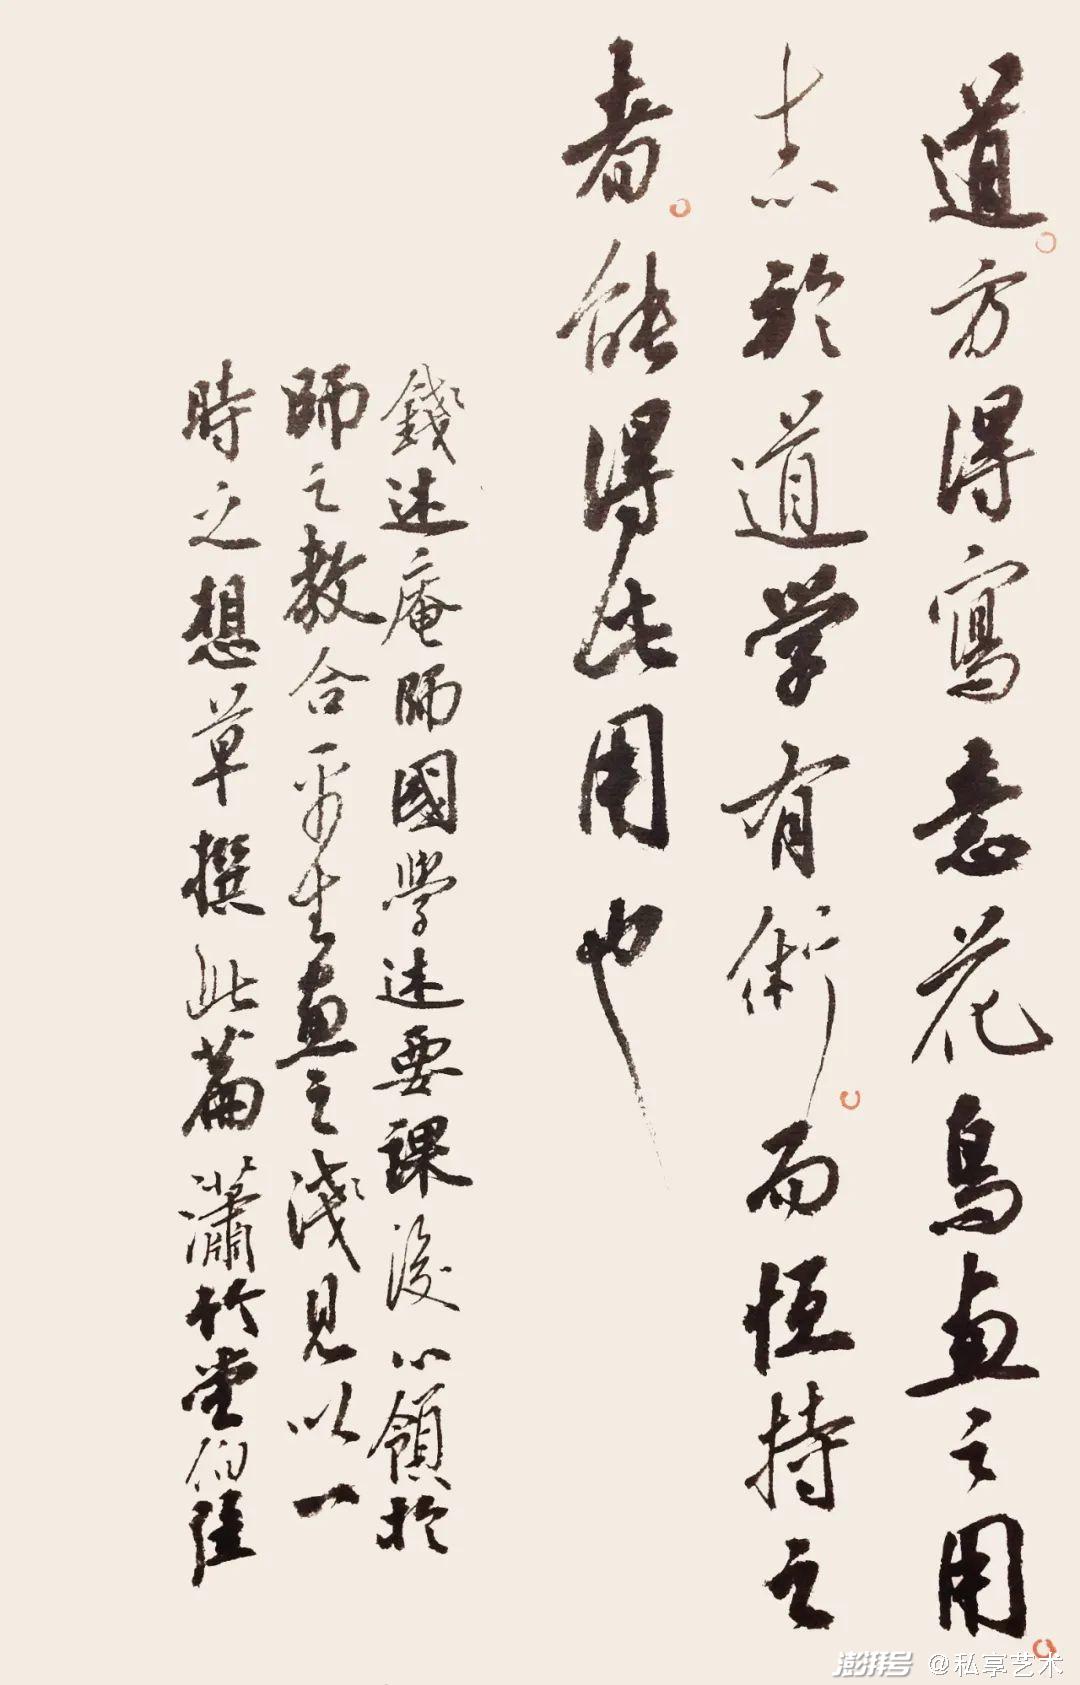 道。方得寫意花鳥画之用。
志於道學有術。而恒持之
者。能得此用也
錢述庵師國學述要課後心領於
師之教合平生画之淺見以一
時之想草撰此篇瀟竹堂伯陸
澎湃号 @私享艺术